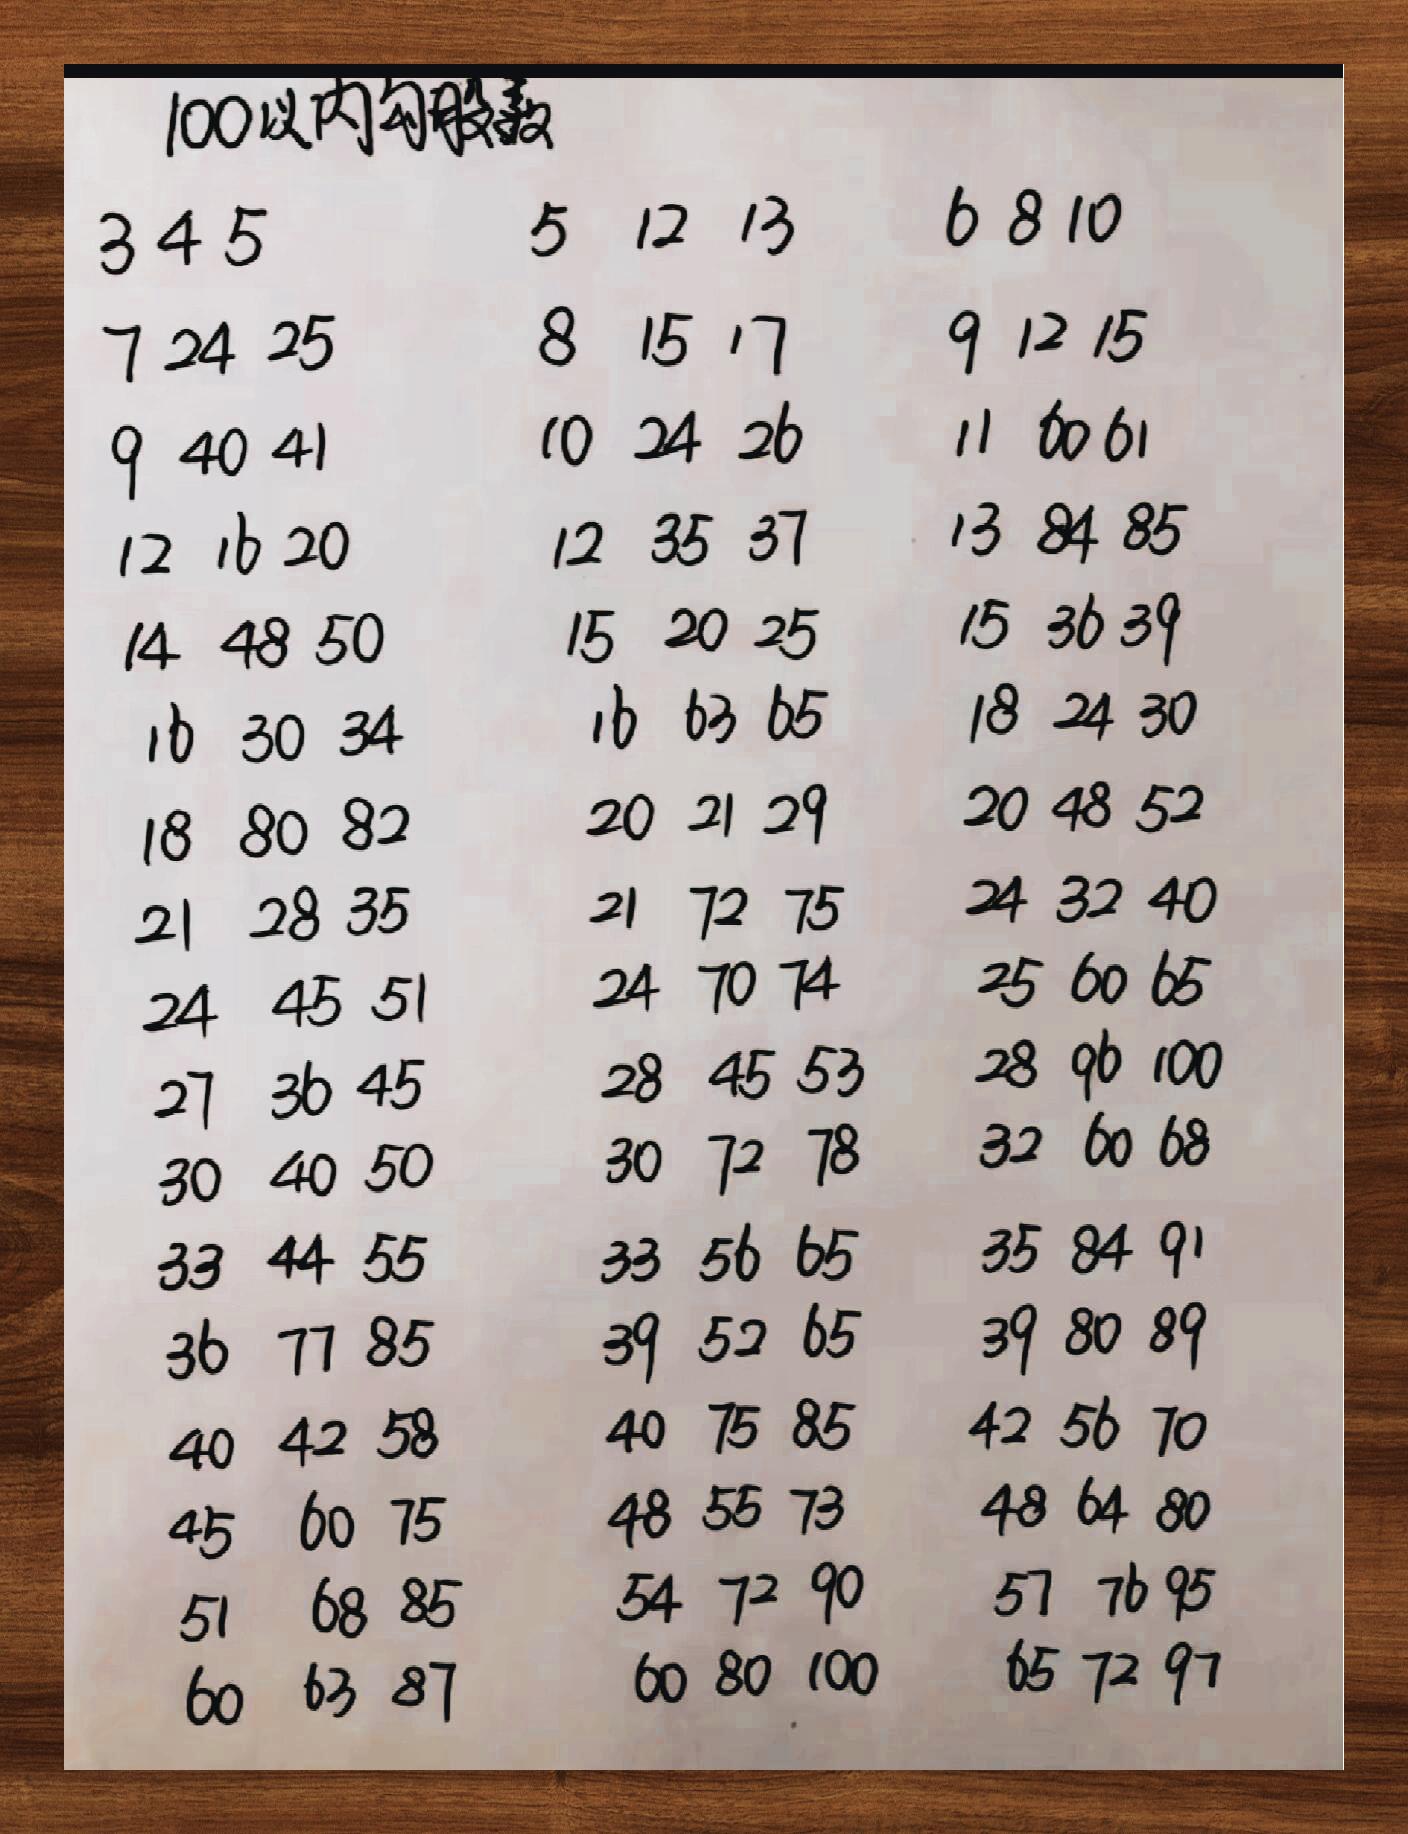 100以内勾股数
3 4 5 5 12 13 6 8 10
7 24 25 8 15 17 9 12 15
9 40 41 10 24 26 11 60 61
12 16 20 12 35 37 13 84 85
14 48 50 15 20 25 15 36 39
16 30 34 16 63 65 18 24 30
18 80 82 20 21 29 20 48 52
21 28 35 21 72 75 24 32 40
24 45 51 24 70 74 25 60 65
27 36 45 28 45 53 28 96 100
30 40 50 30 72 78 32 60 68
33 44 55 33 56 65 35 84 91
36 77 85 39 52 65 39 80 89
40 42 58 40 75 85 42 56 70
45 60 75 48 55 73 48 64 80
51 68 85 54 72 90 57 76 95
60 63 87 60 80 100 65 72 97